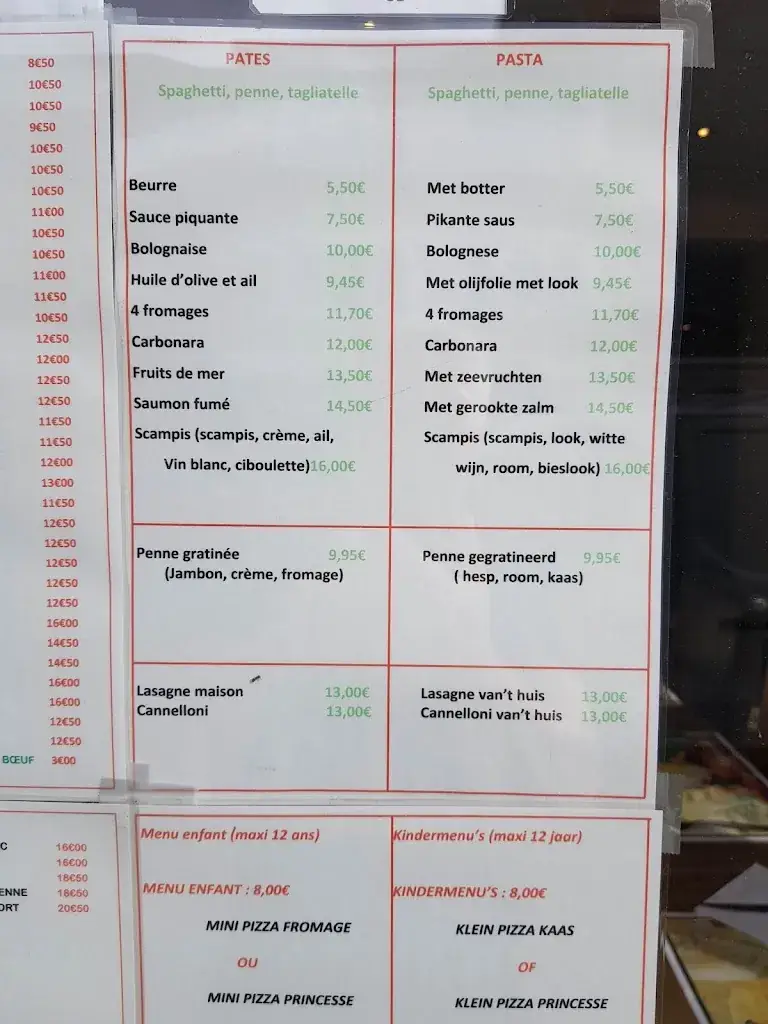 8€50
10€50
10€50
9€50
10€50
10€50
10€50
11€00
10€50
10€50
11€00
11€50
10€50
12€50
12€00
12€50
12€50
11€50
11€50
12€00
13€00
11€50
12€50
12€50
12€50
12€50
12€50
16€00
14€50
14€50
16€00
16€00
12€50
12€50
BŒUF 3€00
C 16€00
16€00
18€50
ENNE 18€50
ORT 20€50
PATES
Spaghetti, penne, tagliatelle
Beurre 5,50€
Sauce piquante 7,50€
Bolognaise 10,00€
Huile d'olive et ail 9,45€
4 fromages 11,70€
Carbonara 12,00€
Fruits de mer 13,50€
Saumon fumé 14,50€
Scampis (scampis, crème, ail,
Vin blanc, ciboulette)16,00€
Penne gratinée 9,95€
(Jambon, crème, fromage)
Lasagne maison 13,00€
Cannelloni 13,00€
PASTA
Spaghetti, penne, tagliatelle
Met botter 5,50€
Pikante saus 7,50€
Bolognese 10,00€
Met olijfolie met look 9,45€
4 fromages 11,70€
Carbonara 12,00€
Met zeevruchten 13,50€
Met gerookte zalm 14,50€
Scampis (scampis, look, witte
wijn, room, bieslook) 16,00€
Penne gegratineerd 9,95€
( hesp, room, kaas)
Lasagne van't huis 13,00€
Cannelloni van't huis 13,00€
Menu enfant (maxi 12 ans)
MENU ENFANT : 8,00€
MINI PIZZA FROMAGE
OU
MINI PIZZA PRINCESSE
Kindermenu's (maxi 12 jaar)
KINDERMENU'S : 8,00€
KLEIN PIZZA KAAS
OF
KLEIN PIZZA PRINCESSE